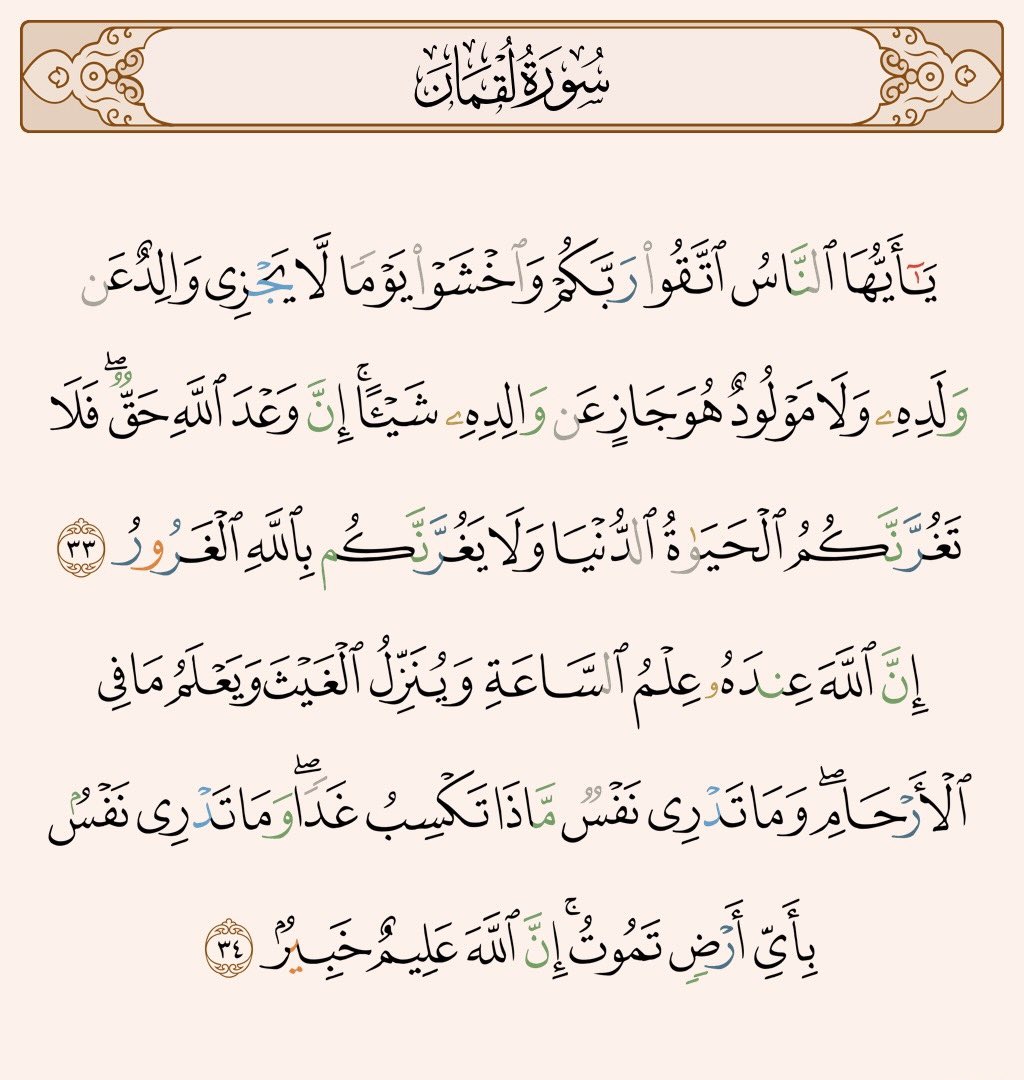 سُورَةُ لُقْمَان
يَـٰٓأَيُّهَا ٱلنَّاسُ ٱتَّقُوا۟ رَبَّكُمْ وَٱخْشَوْا۟ يَوْمًا لَّا يَجْزِى وَالِدٌ عَن
وَلَدِهِۦ وَلَا مَوْلُودٌ هُوَ جَازٍ عَن وَالِدِهِۦ شَيْـًٔا ۚ إِنَّ وَعْدَ ٱللَّهِ حَقٌّ ۖ فَلَا
تَغُرَّنَّكُمُ ٱلْحَيَوٰةُ ٱلدُّنْيَا وَلَا يَغُرَّنَّكُم بِٱللَّهِ ٱلْغَرُورُ ٣٣
إِنَّ ٱللَّهَ عِندَهُۥ عِلْمُ ٱلسَّاعَةِ وَيُنَزِّلُ ٱلْغَيْثَ وَيَعْلَمُ مَا فِى
ٱلْأَرْحَامِ ۖ وَمَا تَدْرِى نَفْسٌ مَّاذَا تَكْسِبُ غَدًا ۖ وَمَا تَدْرِى نَفْسٌۢ
بِأَىِّ أَرْضٍ تَمُوتُ ۚ إِنَّ ٱللَّهَ عَلِيمٌ خَبِيرٌۢ ٣٤